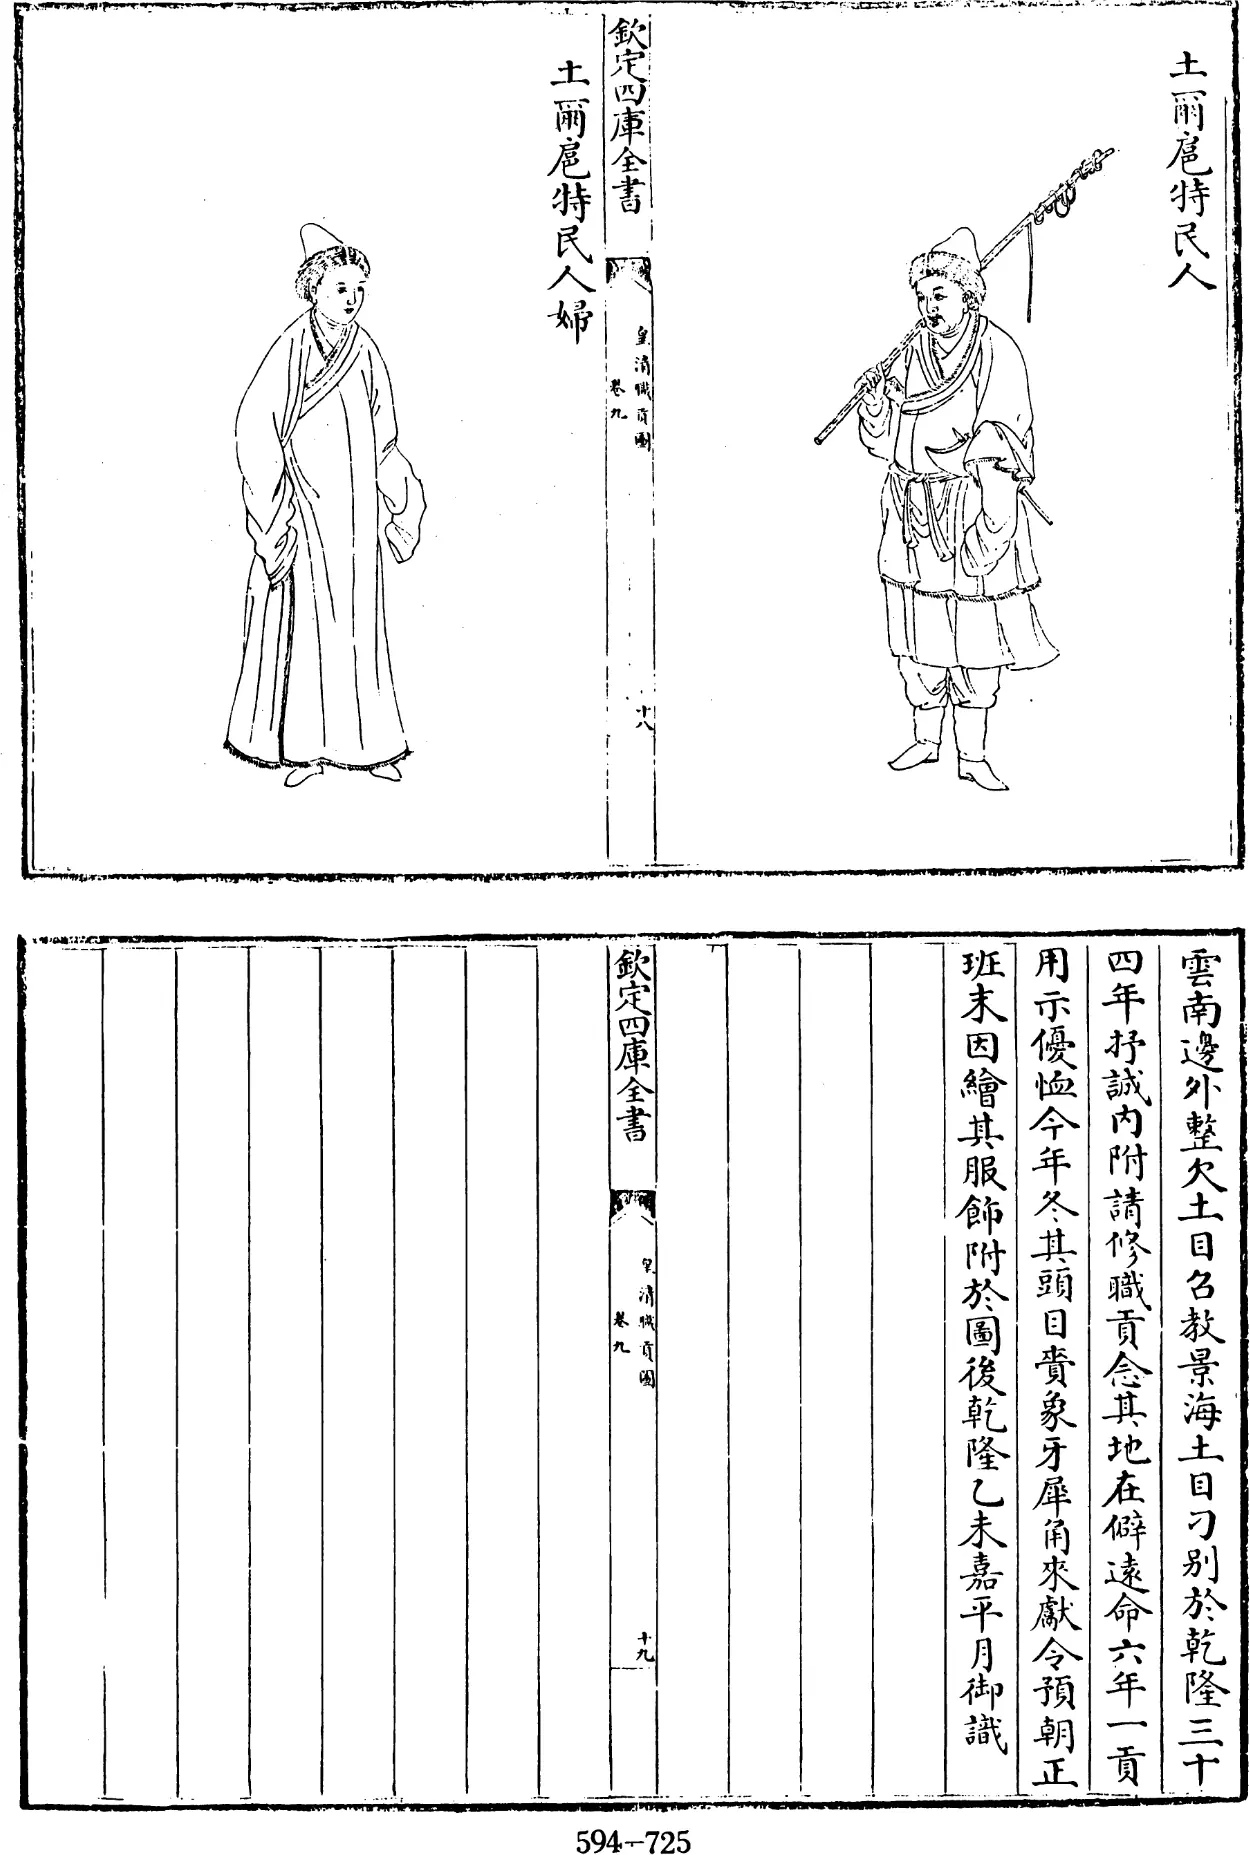 土爾扈特民人
欽定四庫全書
皇清職貢圖
卷九
十八
土爾扈特民人婦
雲南邊外整欠土目召教景海土目刁別於乾隆三十
四年抒誠內附請修職貢念其地在僻遠命六年一貢
用示優恤今年冬其頭目賫象牙犀角來獻令預朝正
班末因繪其服飾附於圖後乾隆乙未嘉平月御識
欽定四庫全書
皇清職貢圖
卷九
十九
594-725